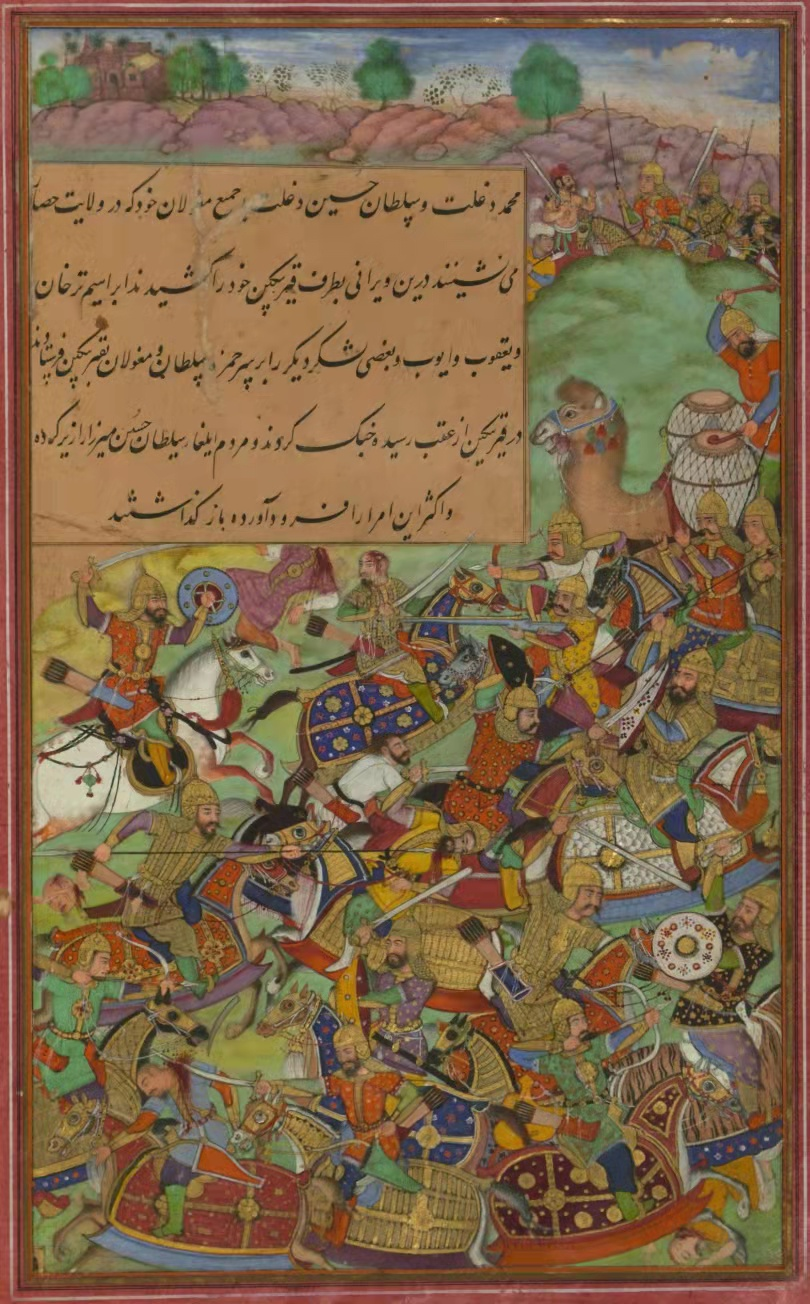 محمد دغلت و سلطان حسین دغلت و جمع مغولان خود که در ولایت حصار
می نشینند درین ویرانی بطرف قبر سکین خود را کشیدند ابراهیم ترخان
و یعقوب و ایوب و بعضی لشکر دیگر را بر سر حمزه سلطان و مغولان بقبر سکین فرستادند
در قبر سکین از عقب رسیده جنک کردند و مردم ایلغار سلطان حسین میرزا را زیر کرده
و اکثر این امرا را فرود آورده باز گذاشتند